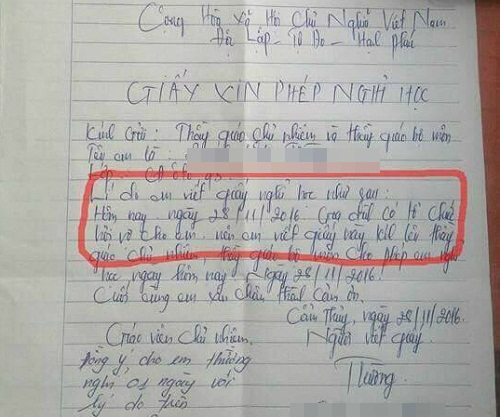 Cộng Hòa Xã Hội Chủ Nghĩa Việt Nam
Độc Lập - Tự Do - Hạnh phúc
GIẤY XIN PHÉP NGHỈ HỌC
Kính Gửi: Thầy giáo chủ nhiệm và thầy giáo bộ môn
Tên em là:
Lớp
Lí do em viết giấy nghỉ học như sau:
Hôm nay ngày 28/11/2016. Gia đình có tổ chức
cho em nên em viết giấy này lên thầy
giáo chủ nhiệm thầy giáo bộ môn cho phép em nghỉ
học ngày hôm nay Ngày 28/11/2016.
Cuối cùng em xin chân thành cảm ơn.
Cẩm Thủy, ngày 28/11/2016.
Giáo viên chủ nhiệm. Người viết giấy
Đồng ý cho em Thường
nghỉ 01 ngày với
lý do trên
Thường